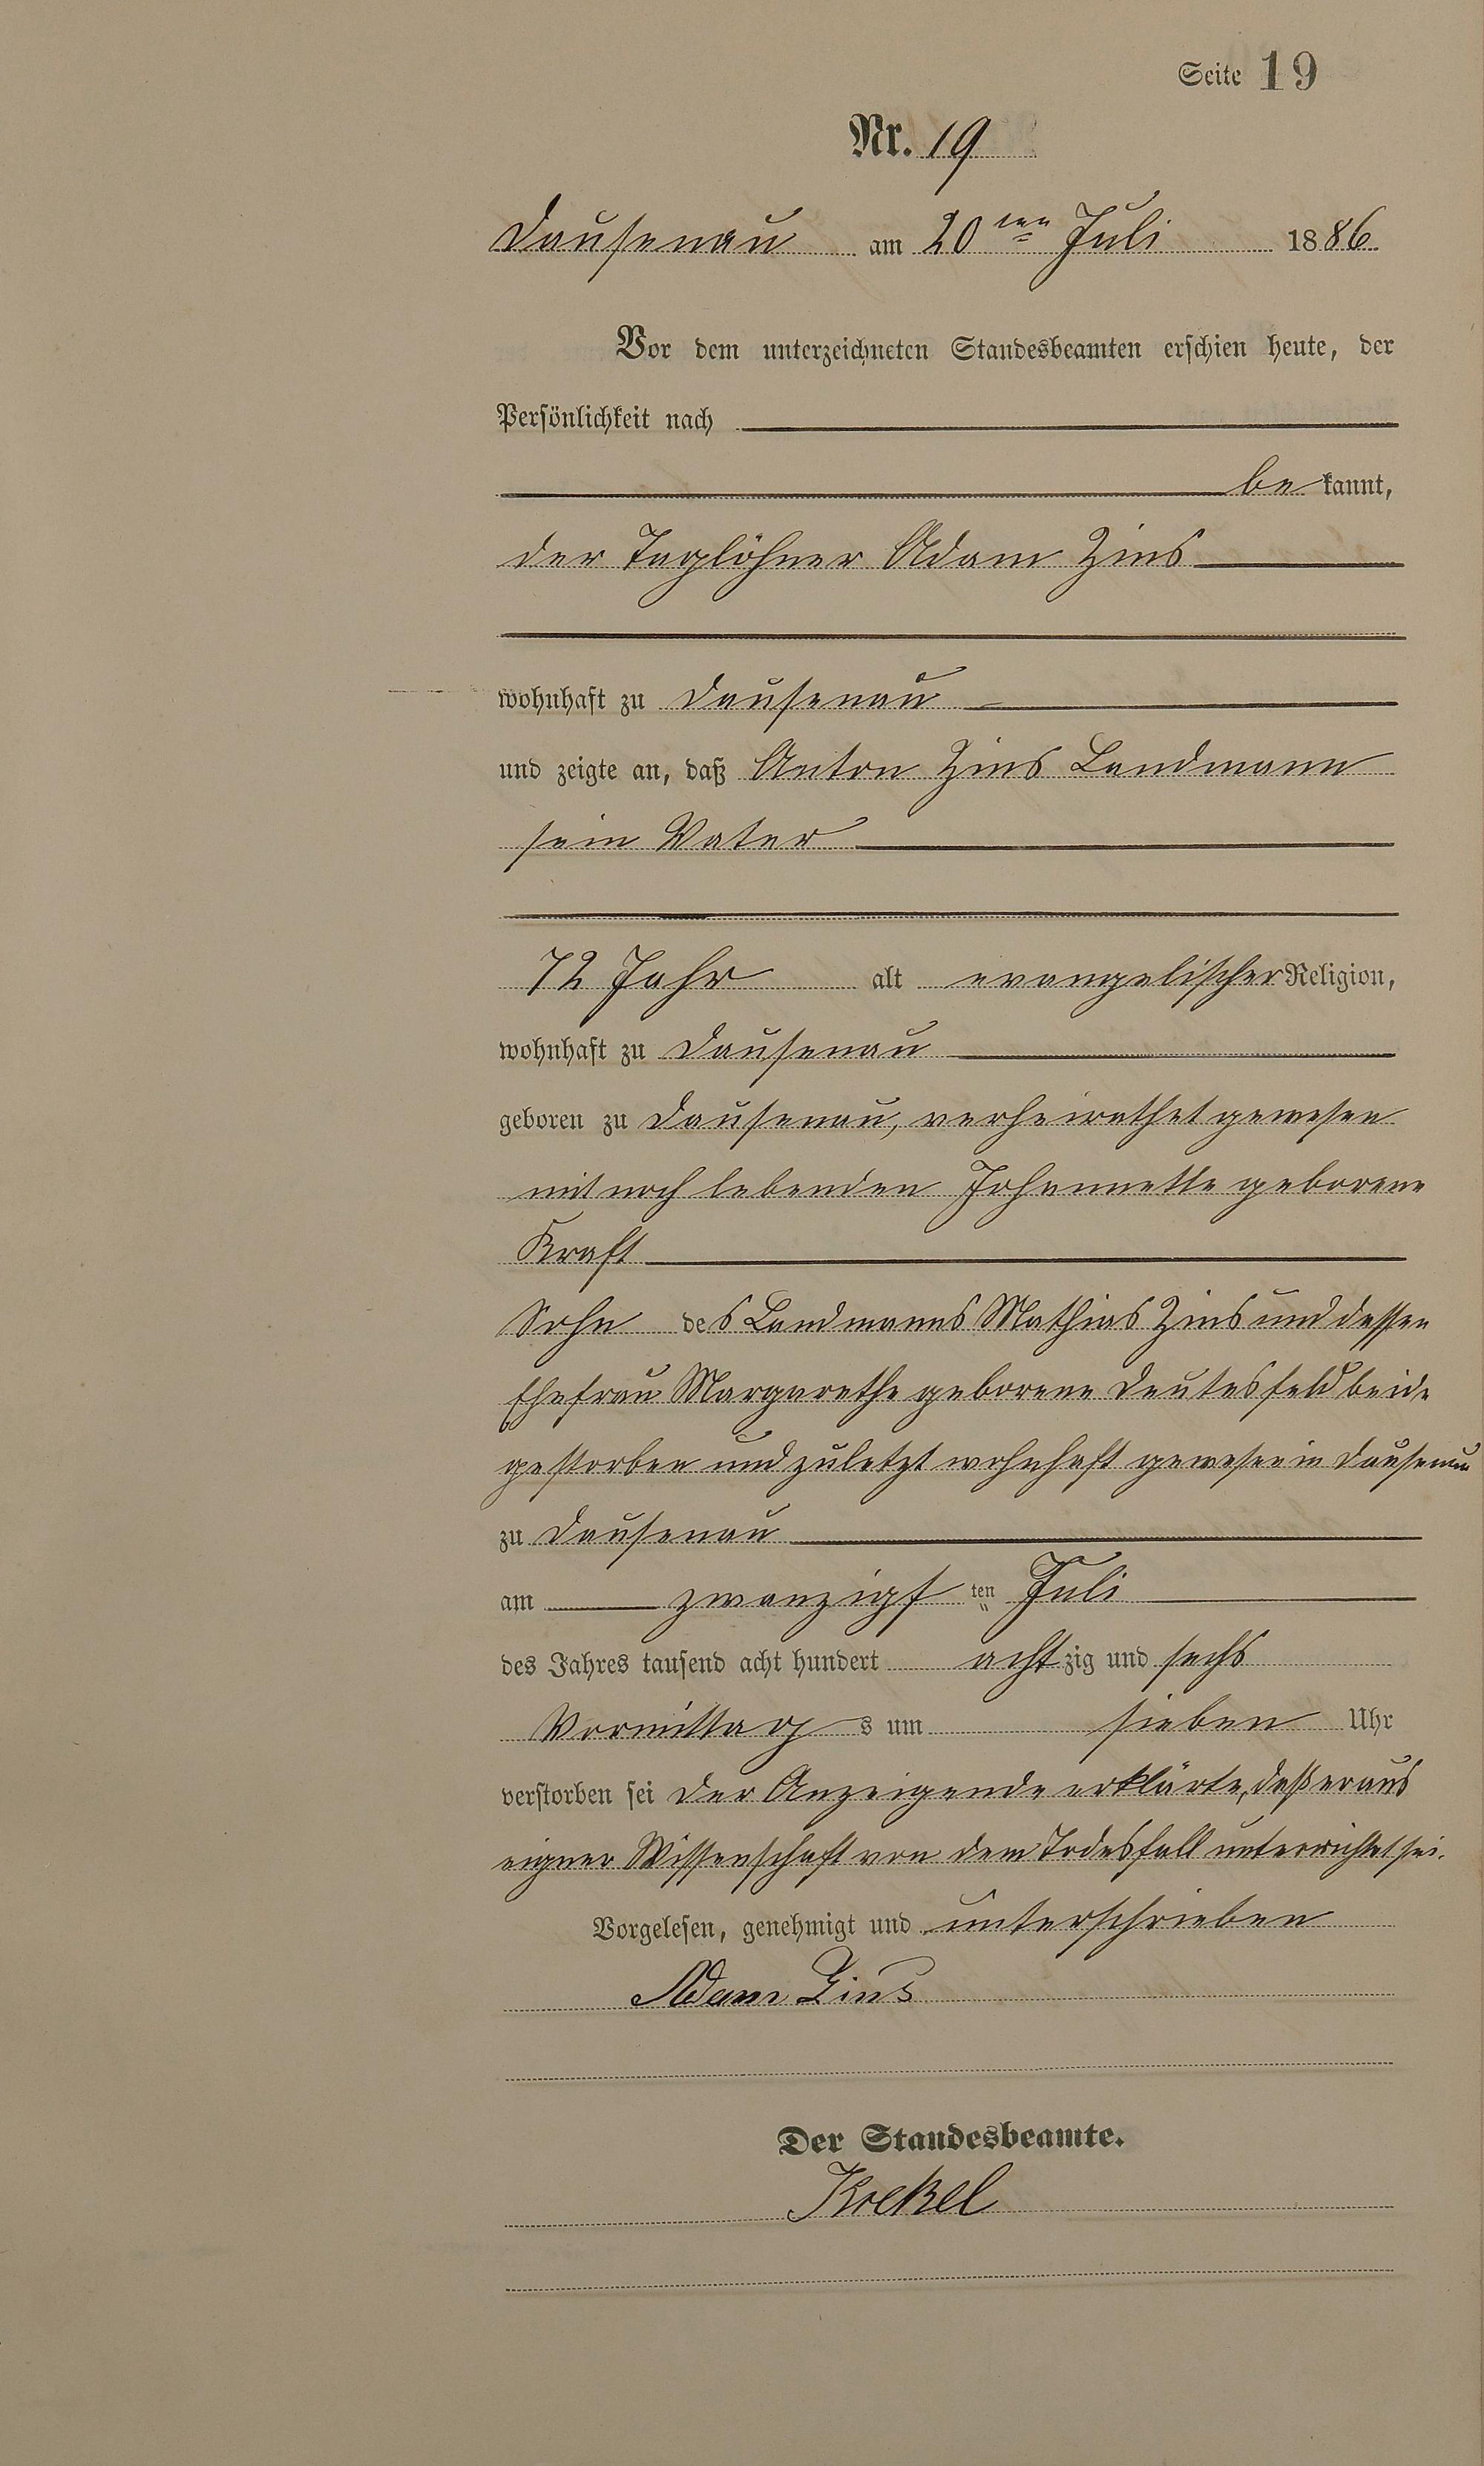 Seite 19
Nr. 19
Dausenau am 20ten Juli 1886.
Vor dem unterzeichneten Standesbeamten erschien heute, der
Persönlichkeit nach
be kannt,
der Taglöhner Adam Zins
wohnhaft zu Dausenau
und zeigte an, daß Anton Zins Landmann
sein Vater
72 Jahr alt evangelischer Religion,
wohnhaft zu Dausenau
geboren zu Dausenau, verheirathet gewesen
mit noch lebenden Johannette geborene
Kraft
Sohn des Landmanns Mathias Zins und dessen
Ehefrau Margarethe geborene Deutesfeld beide
gestorben und zuletzt wohnhaft gewesen in Dausenau
zu Dausenau
am zwanzigsten Juli
des Jahres tausend acht hundert achtzig und sechs
Vormittags um sieben Uhr
verstorben sei Der Anzeigende erklärte, daß er aus
eigner Wissenschaft von dem Todesfall unterrichtet sei.
Vorgelesen, genehmigt und unterschrieben
Adam Zins
Der Standesbeamte.
Krekel